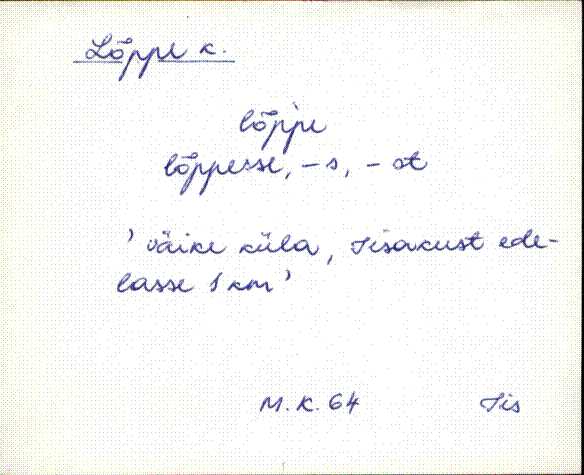 Lõppe k.
lõppe
lõppesse, -s, -st
' väike küla, Sisakust ede-
lasse 1 km '
M.K. 64 Iis